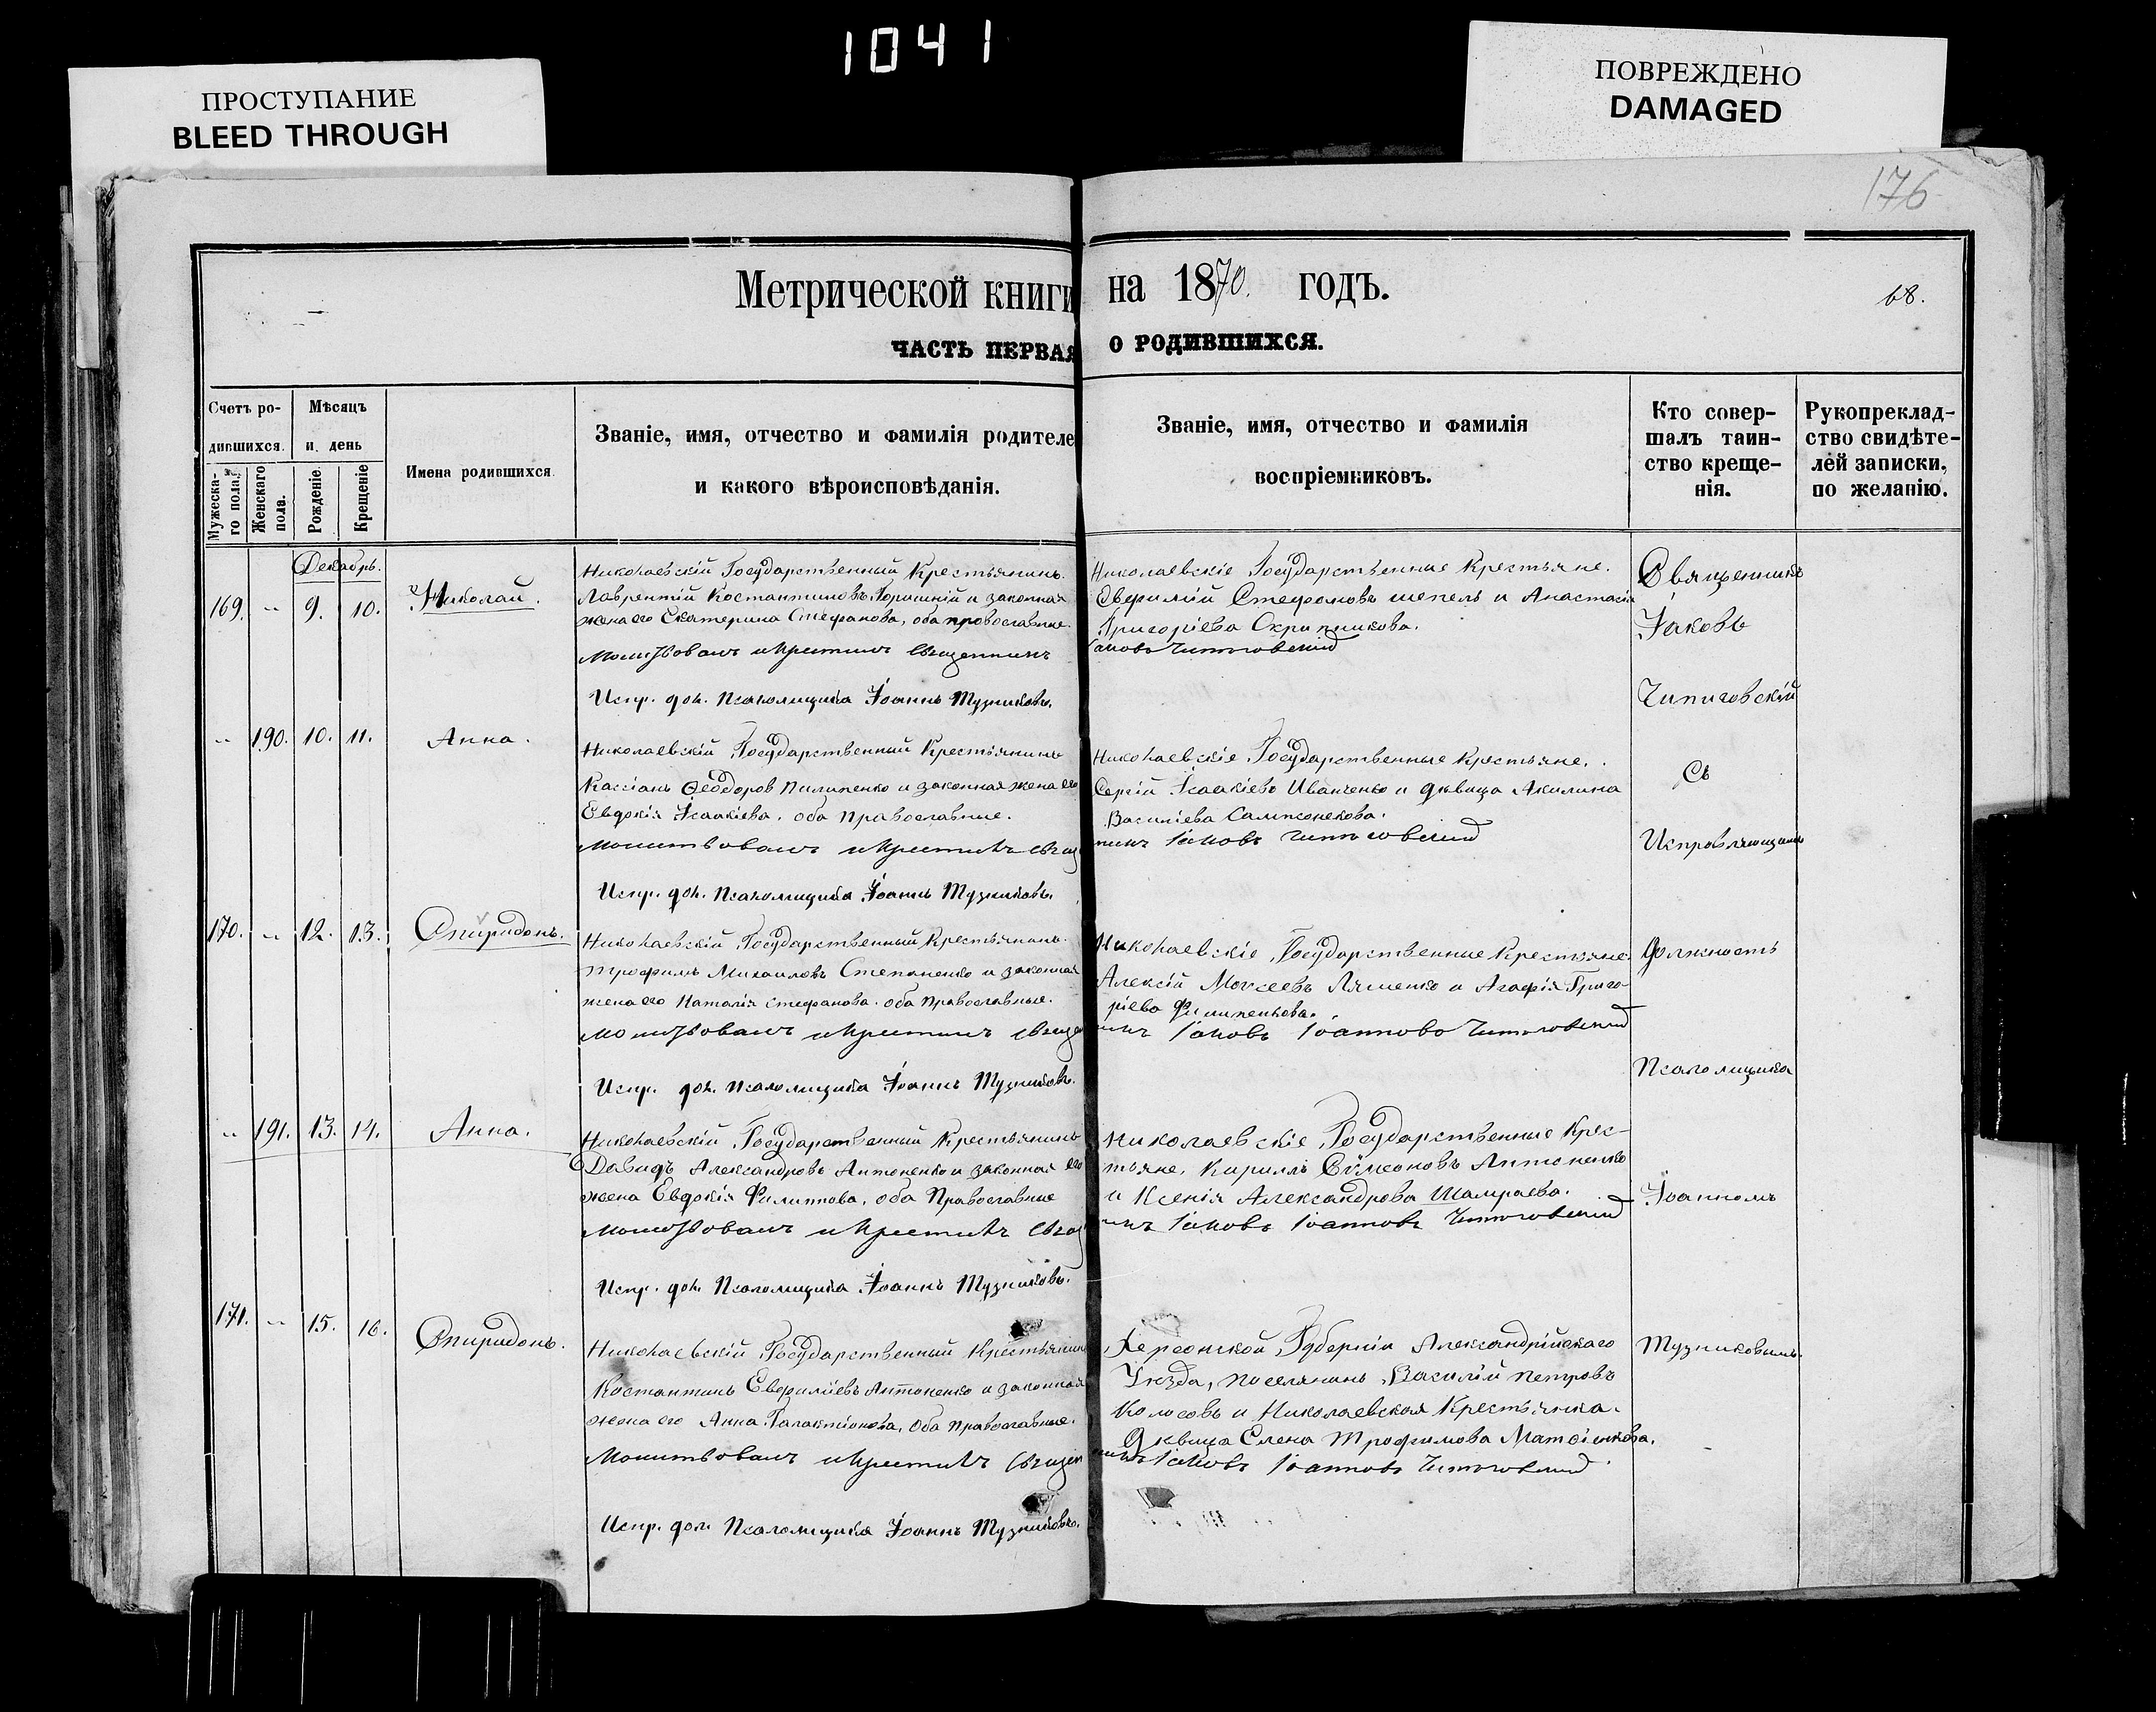 1041
ПРОСТУПАНИЕ
BLEED THROUGH
ПОВРЕЖДЕНО
DAMAGED
176
Метрической книги на 1870. годъ.
68.
ЧАСТЬ ПЕРВАЯ О РОДИВШИХСЯ.
Счетъ ро-
дившихся.
Мужеска-
го пола.
Женскаго
пола.
Мѣсяцъ
и день
Рожденіе.
Крещеніе
Имена родившихся.
Званіе, имя, отчество и фамилія родителе
и какого вѣроисповѣданія.
Званіе, имя, отчество и фамилія
воспріемниковъ.
Кто совер-
шалъ таин-
ство креще-
нія.
Рукоприклад-
ство свидѣте-
лей записки,
по желанію.
Декабрь.
169. „ 9. 10. Николай.
Николаевскій Государственный Крестьянинъ
Лаврентій Костантиновъ и законная
жена его Екатерина Стефанова, оба православные.
Молитвовалъ и крестилъ священникъ
Іаковъ Чипиговскій
Испр. дол. Псаломщика Іоаннъ Тузниковъ.
Николаевскіе Государственные Крестьяне.
Евфимій Стефановъ Шепель и Анастасія
Григоріева Скрипникова.
„ 190. 10. 11. Анна.
Николаевскій Государственный Крестьянинъ
Кассіанъ Феодоров Пилипенко и законная жена его
Евдокія Исаакіева. оба православные.
Молитвовалъ и крестилъ священникъ Іаковъ Чипиговскій
Испр. дол. Псаломщика Іоаннъ Тузниковъ.
Николаевскіе Государственные Крестьяне.
Сергій Исаакіевъ Иванченко и дѣвица Акилина
Василіева Сампсонекова.
170. „ 12. 13. Спиридонъ.
Николаевскій Государственный Крестьянинъ
Трофимъ Михаиловъ Степаненко и законная
жена его Наталія Стефанова. оба православные.
Молитвовалъ и крестилъ священникъ Іаковъ Іоанновъ Чипиговскій
Испр. дол. Псаломщика Іоаннъ Тузниковъ.
Николаевскіе Государственные Крестьяне
Алексій Моисеевъ Ляшенко и Агафія Григо-
ріева Филипенкова.
„ 191. 13. 14. Анна.
Николаевскій Государственный Крестьянинъ
Давидъ Александровъ Антоненко и законная его
жена Евдокія Филиппова, оба Православные
Молитвовалъ и крестилъ священникъ Іаковъ Іоанновъ Чипиговскій
Испр. дол. Псаломщика Іоаннъ Тузниковъ.
Николаевскіе Государственные Крес-
тьяне, Кириллъ Сѵмеоновъ Антоненко
и Ксенія Александрова Шамраева.
171. „ 15. 16. Спиридонъ.
Николаевскій Государственный Крестьянинъ
Костантинъ Евфиміевъ Антоненко и законная
жена его Анна Галактіонова, оба православные.
Молитвовалъ и крестилъ священникъ Іаковъ Іоанновъ Чипиговскій
Испр. дол. Псаломщика Іоаннъ Тузниковъ.
Херсонской Губерніи Александрійскаго
Уѣзда, поселянинъ Василій Петровъ
Колосовъ и Николаевская Крестьянка
дѣвица Елена Трофимова
Священникъ
Іаковъ
Чипиговскій
Съ
Исправляющимъ
Должность
Псаломщика
Іоанномъ
Тузниковымъ.